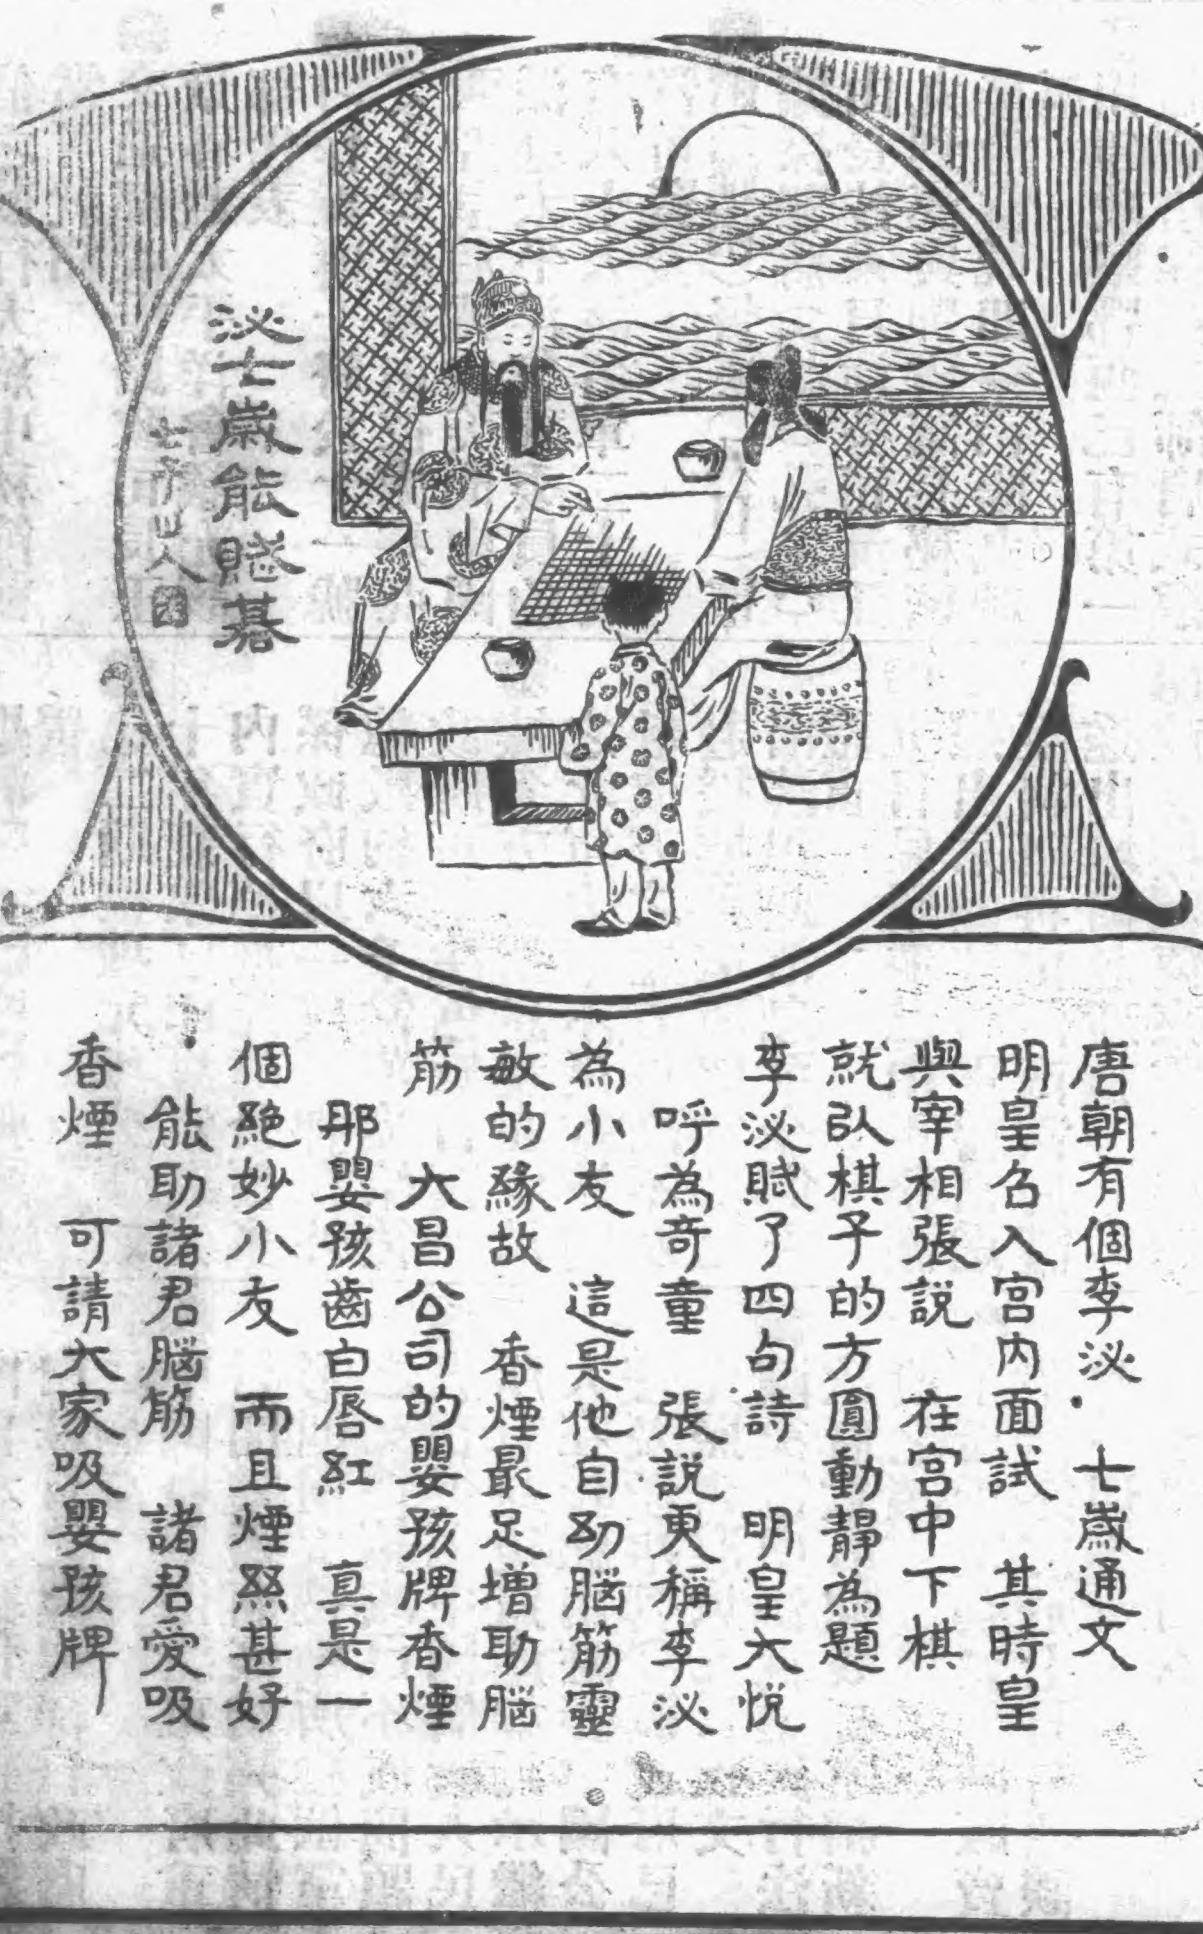 泌七歲能賦碁
唐朝有個李泌 七歲通文
明皇召入宮內面試 其時皇
與宰相張説 在宮中下棋
就以棋子的方圓動靜為題
李泌賦了四句詩 明皇大悦
呼為奇童 張説更稱李泌
為小友 這是他自幼腦筋靈
敏的緣故 香煙最足增助腦
筋 大昌公司的嬰孩牌香煙
那嬰孩齒白唇紅 真是一
個絕妙小友 而且煙絲甚好
能助諸君腦筋 諸君愛吸
香煙 可請大家吸嬰孩牌